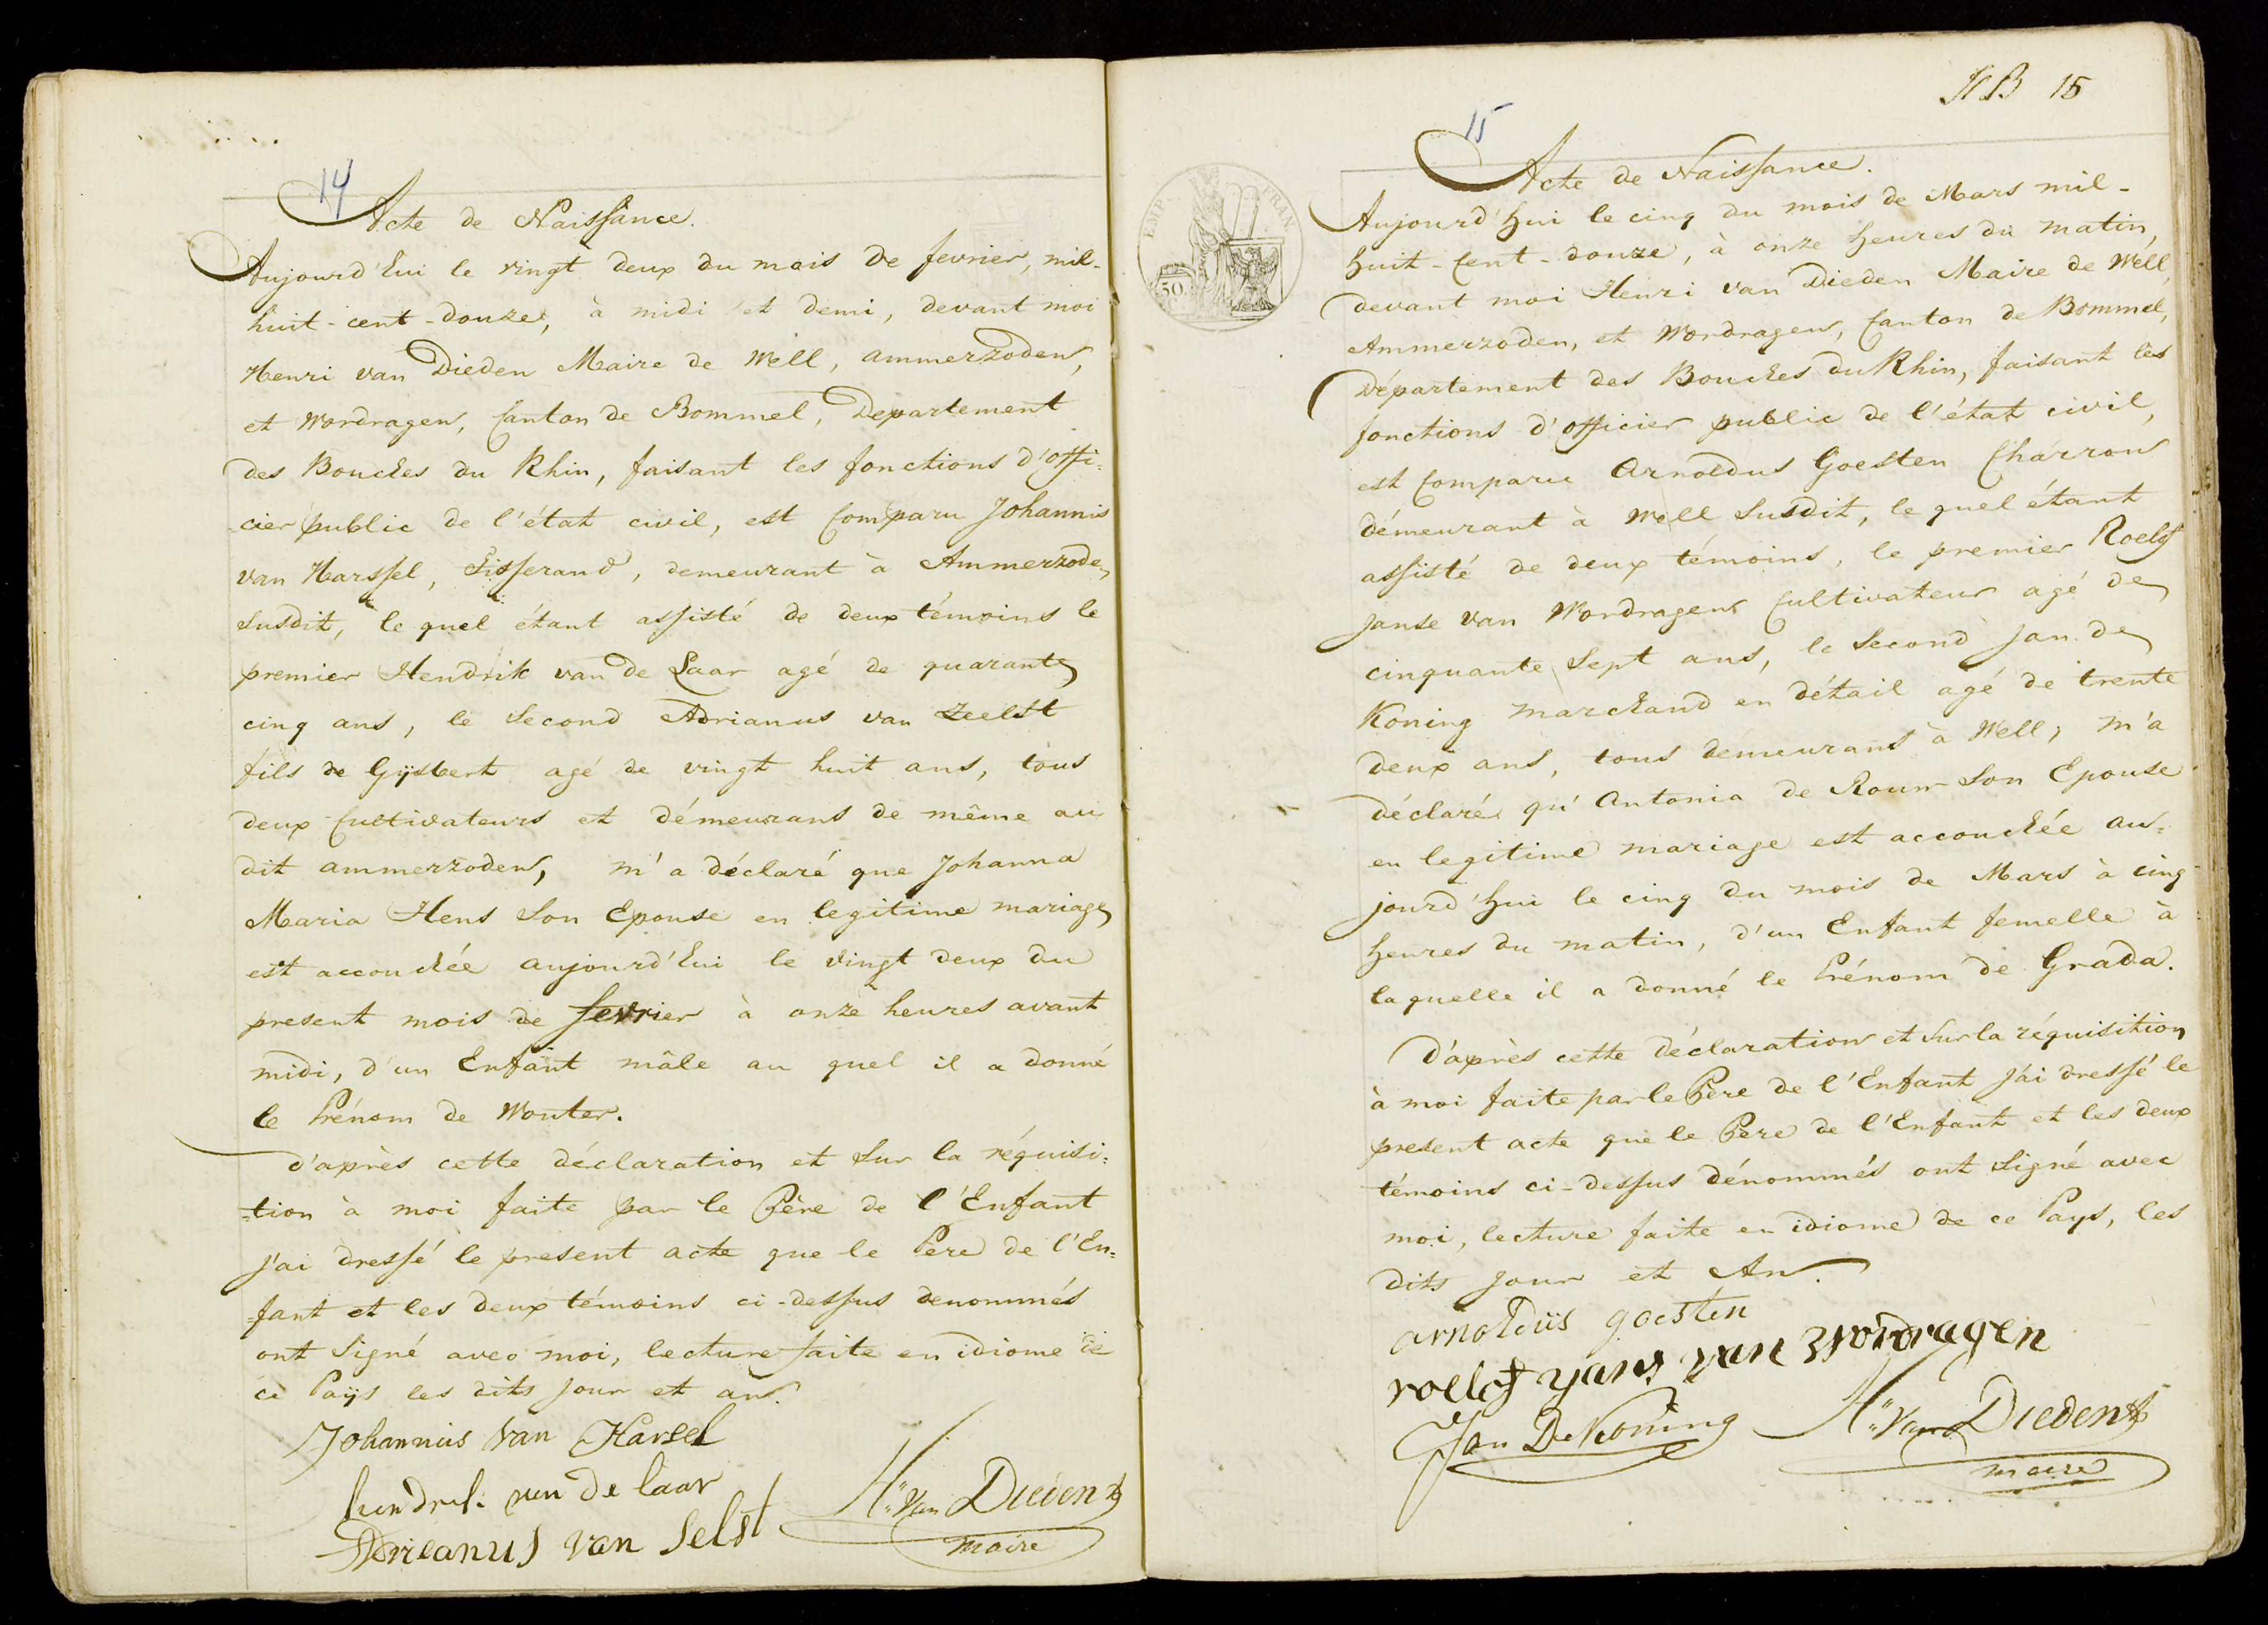 14
Acte de Naissance.
Aujourd'hui le vingt deux du mois de fevrier, mil-
huit-cent-douze, à midi et demi, devant moi
Henri van Dieden Maire de Well, ammerzoden,
et Wordragen, Canton de Bommel, Departement
des Bouches du Rhin, faisant les fonctions d'offi=
cier public de l'état civil, est Comparu Johannis
van Harssel, Tisserand, demeurant à Ammerzode,
susdit, le quel étant assisté de deux témoins le
premier Hendrik van de Laar agé de quarante
cinq ans, le second Adrianus van Zeelst
fils de Gijsbert agé de vingt huit ans, tous
deux Cultivateurs et démeurans de même au
dit ammerzoden, m'a déclaré que Johanna
Maria Hens son Epouse en legitime mariage
est accouchée aujourd'hui le vingt deux du
present mois de fevrier à onze heures avant
midi, d'un Enfant mâle au quel il a donné
le Prénom de Wouter.
d'après cette déclaration et sur la réquisi=
=tion à moi faite par le Père de l'Enfant
j'ai dressé le present acte que le Père de l'En=
=fant et les deux témoins ci-dessus denommés
ont signé avec moi, lecture faite en idiome de
ce Païjs les dits jour et an.
Johannis van Harsel
hendrik van de laar
Adrieanus van Selst
H: van Dieden
maire
NB 15
15
EMP. FRAN.
50
Acte de Naissance.
Aujourd'hui le cinq du mois de Mars mil-
huit-Cent-douze, à onze heures du matin,
devant moi Henri van Dieden Maire de Well,
Ammerzoden, et Wordragen, Canton de Bommel,
Département des Bouches du Rhin, faisant les
fonctions d'officier public de l'état civil,
est Comparu Arnoldus Goesten Charron
démeurant à Well susdit, le quel étant
assisté de deux témoins, le premier Roelof
Janse van Wordragen Cultivateur agé de
cinquante sept ans, le second Jan de
Koning marchand en détail agé de trente
deux ans, tous demeurans à Well, m'a
déclaré qu'Antonia de Rouw son Epouse
en legitime mariage est accouchée au=
jourd'hui le cinq du mois de Mars à cinq
heures du matin, d'un Enfant femelle à
laquelle il a donné le Prénom de Grada.
D'après cette déclaration et sur la réquisition
à moi faite par le Père de l'Enfant j'ai dressé le
present acte que le Père de l'Enfant et les deux
témoins ci-dessus dénommés ont signé avec
moi, lecture faite en idiome de ce Pays, les
dits jour et An.
arnoldüs goesten
roelof yans van Wordragen
Jan De Koning
H: van Dieden
maire